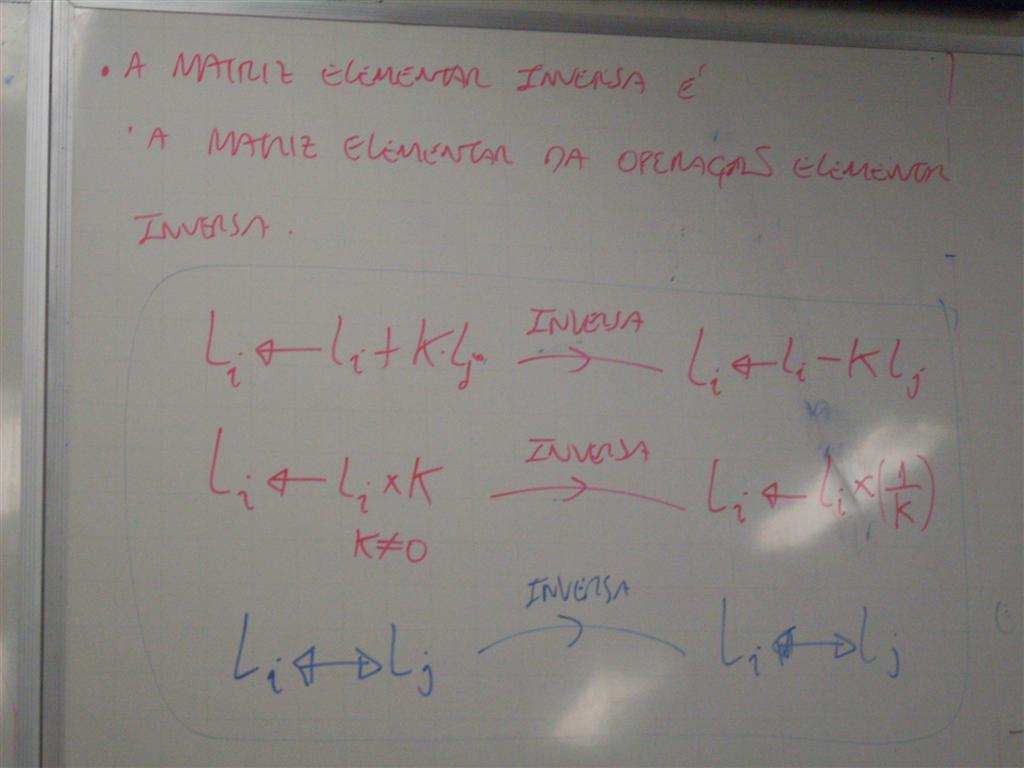 • A MATRIZ ELEMENTAR INVERSA É
A MATRIZ ELEMENTAR DA OPERAÇÃO ELEMENTAR
INVERSA.
Li ← Li + K·Lj INVERSA → Li ← Li − K Lj
Li ← Li × K INVERSA → Li ← Li × (1/K)
K ≠ 0
Li ↔ Lj INVERSA → Li ↔ Lj